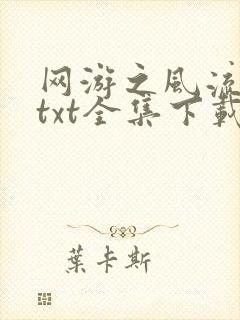 网游之风流
txt全集下载
葉卡斯